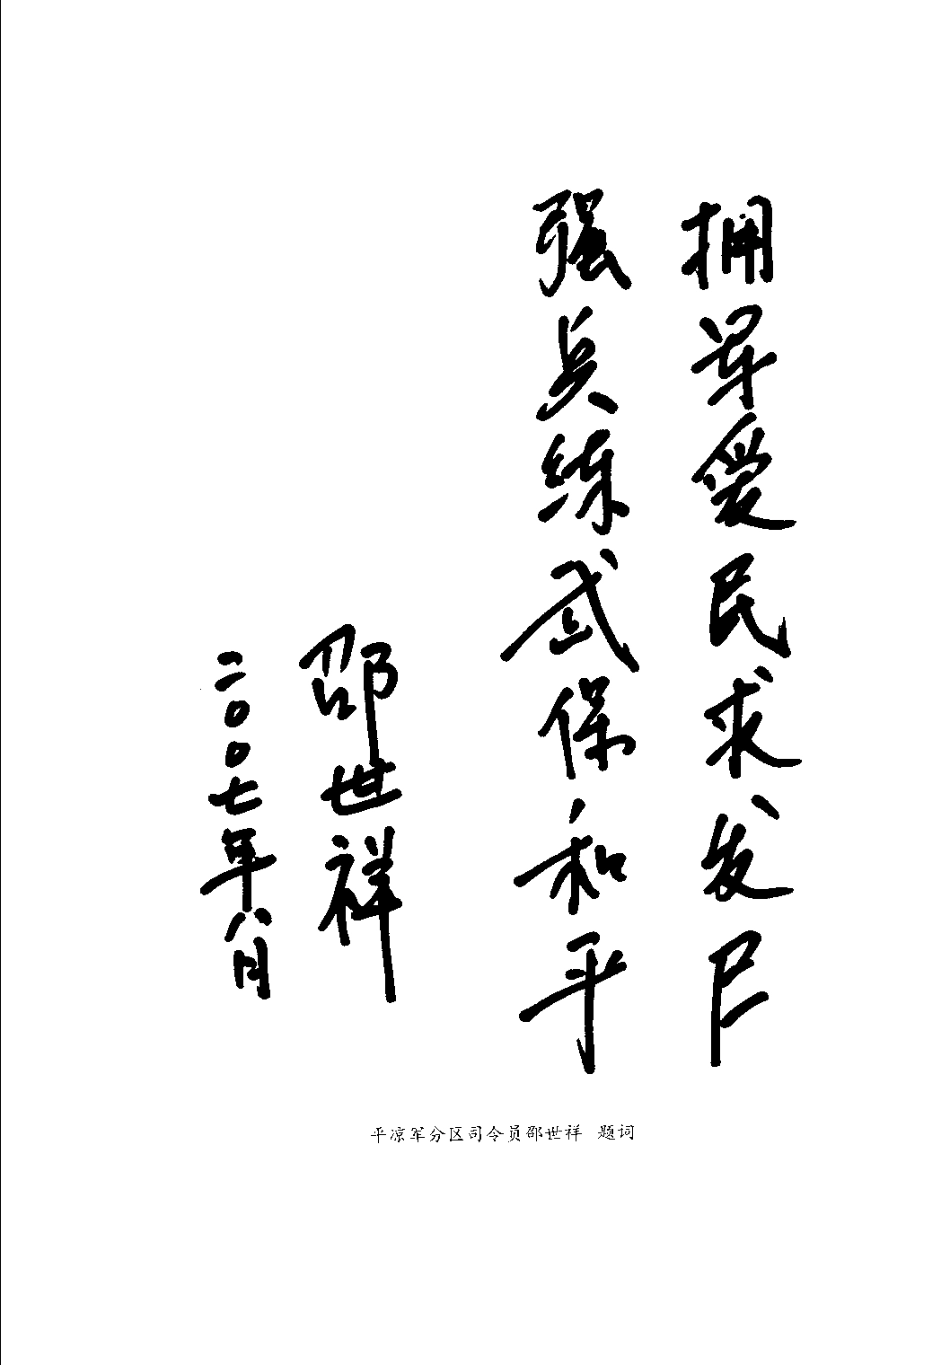 拥军爱民求发尸
强兵练武保和平
邵世祥
二〇〇七年八月
平凉军分区司令员邵世祥 题词